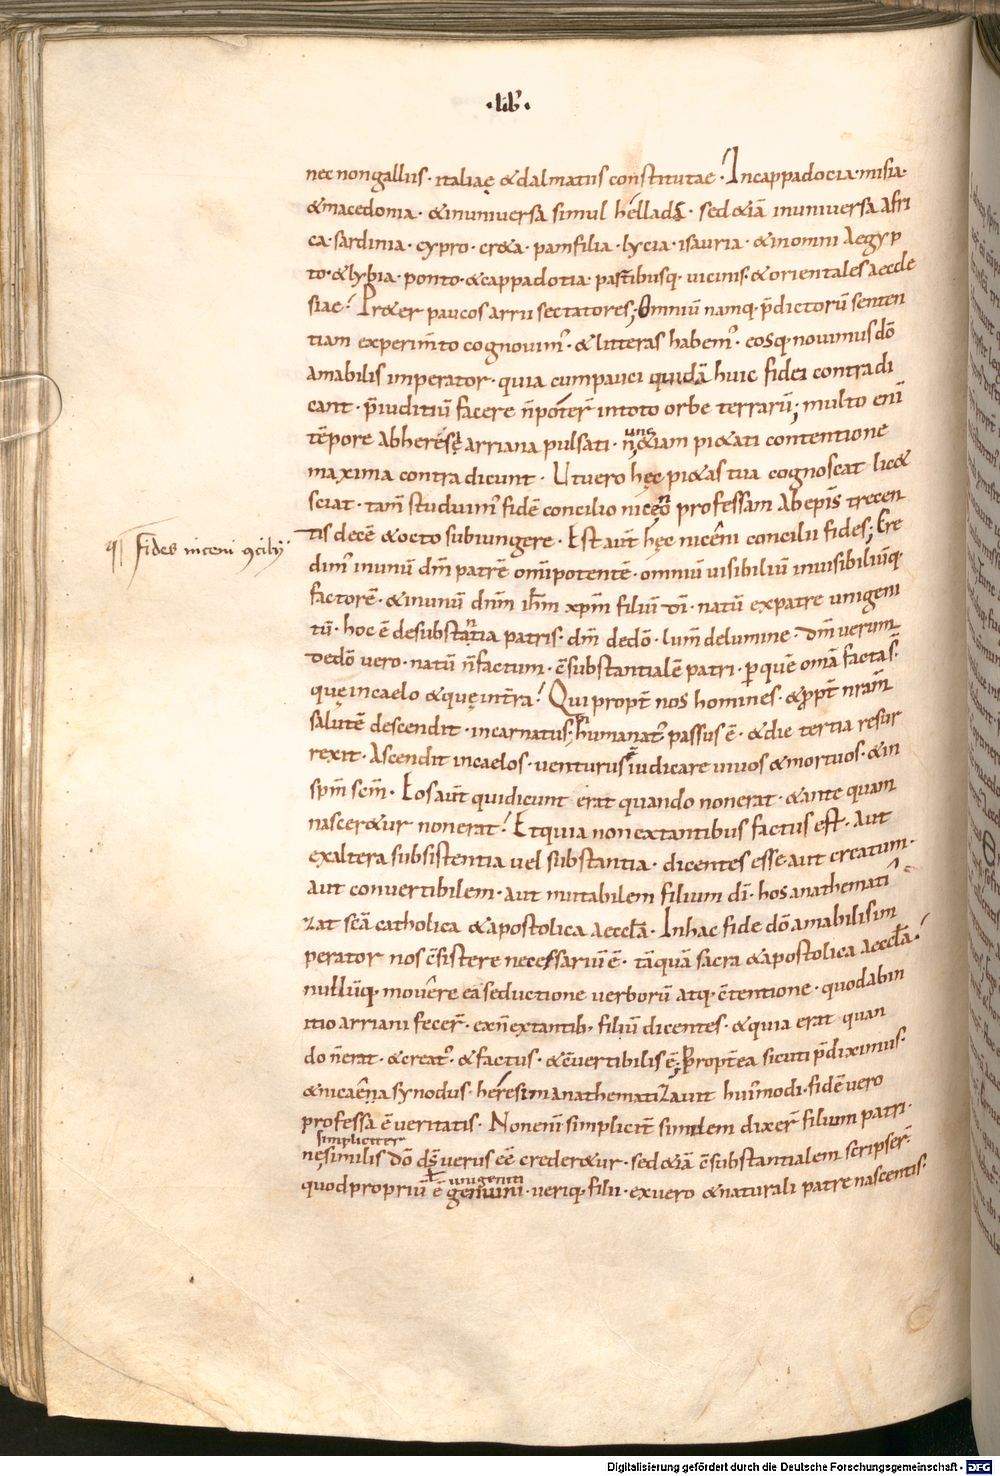 ·lib̄·
nec non gallus · italiaę & dalmatus constitutae · In cappadocia · misia ·
& macedonia · & in universa simul hellada · sed & iā in universa afri
ca · sardinia · cypro · cr&a · pamfilia · lycia · isauria · & in omni aegyp
to · & lybia · ponto · & cappadotia · partibusq· vicinis · & orientales aecle
siae · Pr&er paucos arrii sectatores; Omniū namq· p̄dictorū senten
tiam experim̄to cognovim᾽ · & litteras habem᾽ · eosq· novimus dō
amabilis imperator · quia cum pauci quidā huic fidei contradi
cant · p̄iuditiū facere n̄ poter̄ in toto orbe terrarū; multo enī
tēpore ab heresę arriana pulsati · n̄ &iam pi&ati contentione
nunc
maxima contradicunt · Ut vero hęc pi&as tua cognoscat lic&
sciat · tam̄ studuim᾽ fidē concilio niceno professam ab ep̄is trecen
tis decē & octo subiungere · Est aūt hęc nicēni concilii fides; Cre
fides niceni 9cilij
dim᾽ in unū dm̄ patrē om̄ipotentē · omniū visibiliū invisibiliūq·
factorē · & in unū dnm̄ ih̄m xpm̄ filiū dī · natū ex patre unigeni
tū · hoc ē de substantia patris · dm̄ de dō · lum̄ de lumine · dm̄ verum
de dō vero · natū n̄ factum · c̄substantialē patri · p quē om̄a facta s̄·
quę in caelo & quę in t̄ra · Qui propt̄ nos homines · & ppt̄ nrām
salutē descendit · incarnatus; humanat᾽ passus ē · & die tertia resur
rexit · Ascendit in caelos · venturus iudicare vivos & mortuos · & in
spm̄ scm̄ · Eos aūt qui dicunt erat quando non erat · & ante quam
nascer&ur non erat · Et quia non extantibus factus est · aut
ex altera subsistentia vel substantia · dicentes esse · aut creatum ·
aut convertibilem · aut mutabilem filium dī · hos anathemati
zat scā catholica & apostolica aeccl̄a · In hac fide dō amabilis im
perator nos c̄sistere necessariū ē · tā quā sacra & apostolica aeccl̄a ·
nullūq· movēre eā seductione verborū atq· c̄tentione · quod ab in
itio arriani fecer̄ · ex n̄ extantib, filiū dicentes · & quia erat quan
do n̄ erat · & creat᾽ · & factus · & c̄vertibilis ē; Propt̄ea sicuti p̄diximus ·
& nicaēna synodus · heresim anathematizavit hui᾽modi · fidē vero
professa ē veritatis · Non enī simplicit̄ similem dixer̄ filium patri ·
simpliciter
ne similis dō ds̄ verus eē creder&ur · sed & iā c̄substantialem scripser̄ ·
unigeniti
quod propriū ē genuini · veriq· filii · ex vero & naturali patre nascentis ·
Digitalisierung gefördert durch die Deutsche Forschungsgemeinschaft - DFG